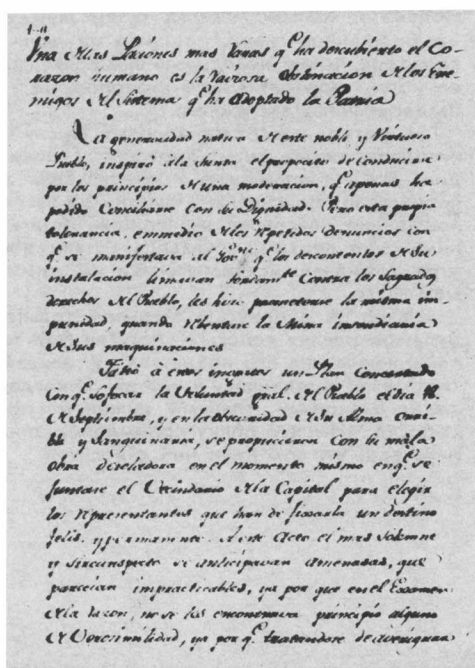 Una de las Lecciones mas Vanas q.e ha descubierto el Co-
razon humano es la viciosa obstinacion de los Ene-
migos del Sistema q.e ha adoptado la Patria
La generosidad nativa de este noble y Virtuoso
Pueblo, inspiró á la Junta el proposito de conducirse
por los principios de una moderacion, q.e apenas ha
podido Conciliarse con su Dignidad. Pero esta propia
tolerancia, enmedio de los repetidos denuncios con
q.e se manifestava al Gov.no q.e los descontentos de su
instalacion limavan sordam.te Contra los Sagrados
derechos del Pueblo, les hizo prometerse la misma im-
punidad, quando rebentase la Mina incendiaria
de Sus maquinaciones
Faltó á estos ineptos un Plan Concertado
Con q.e Sofocar la Voluntad gral. del Pueblo el dia 18
de Septiembre, y en la obscuridad de Su Alma
y Sanguinaria, se propusieron Con su mala
obra en el momento mismo en q.e se
Juntase el Vecindario de la Capital para elegir
los representantes que han de fixarla un destino
felis, y permanente. A este Acto el mas Solemne
y Sircunspecto se anticipavan amenasas, que
parecian impracticables, ya por que en el Examen
de la razon, no se les encontrava principio alguno
de Verosimilidad, ya por q.e tratandose de averiguar